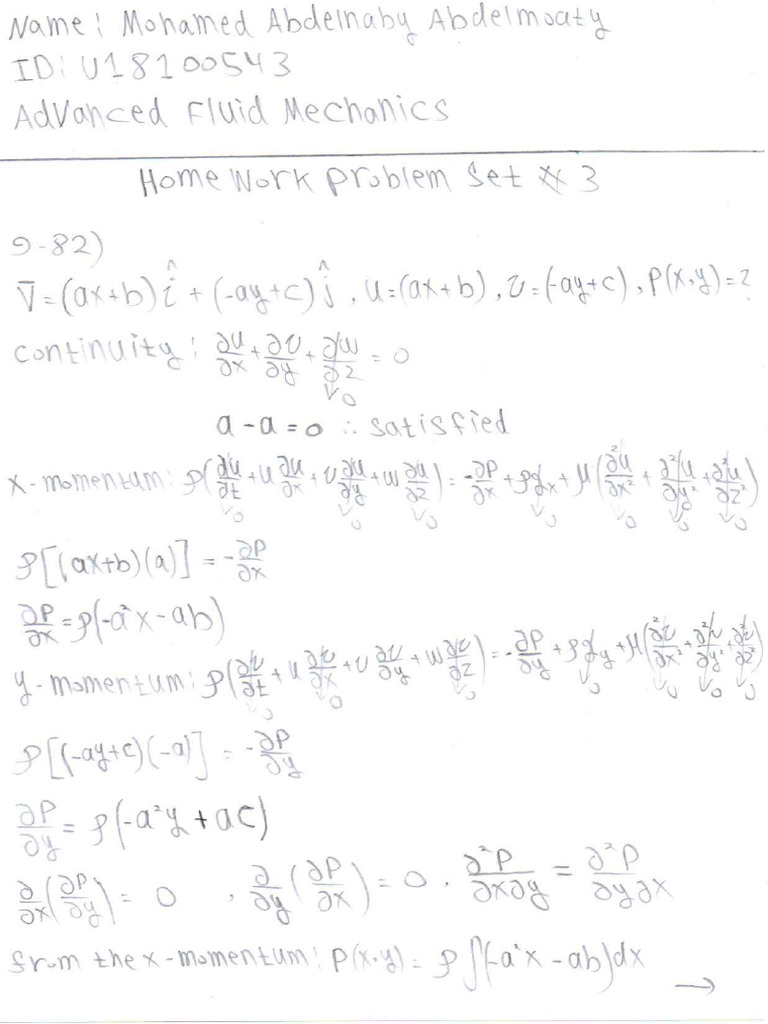 Name: Mohamed Abdelnaby Abdelmoaty
ID: U18100543
Advanced Fluid Mechanics
Home Work problem Set # 3
9-82)
V̄=(ax+b)î + (-ay+c)ĵ, u=(ax+b), v=(-ay+c), P(x,y)=?
continuity: ∂u/∂x + ∂v/∂y + ∂w/∂z = 0
→0
a-a=0 ∴ satisfied
x-momentum: ρ(∂u/∂t + u ∂u/∂x + v ∂u/∂y + w ∂u/∂z) = -∂P/∂x + ρgx + μ(∂²u/∂x² + ∂²u/∂y² + ∂²u/∂z²)
→0 →0 →0 →0 →0 →0 →0
ρ[(ax+b)(a)] = -∂P/∂x
∂P/∂x = ρ(-a²x-ab)
y-momentum: ρ(∂v/∂t + u ∂v/∂x + v ∂v/∂y + w ∂v/∂z) = -∂P/∂y + ρgy + μ(∂²v/∂x² + ∂²v/∂y² + ∂²v/∂z²)
→0 →0 →0 →0 →0 →0 →0
ρ[(-ay+c)(-a)] = -∂P/∂y
∂P/∂y = ρ(-a²y + ac)
∂/∂x(∂P/∂y) = 0 , ∂/∂y(∂P/∂x) = 0 . ∂²P/∂x∂y = ∂²P/∂y∂x
from the x-momentum: P(x,y) = ρ∫(-a²x - ab)dx →